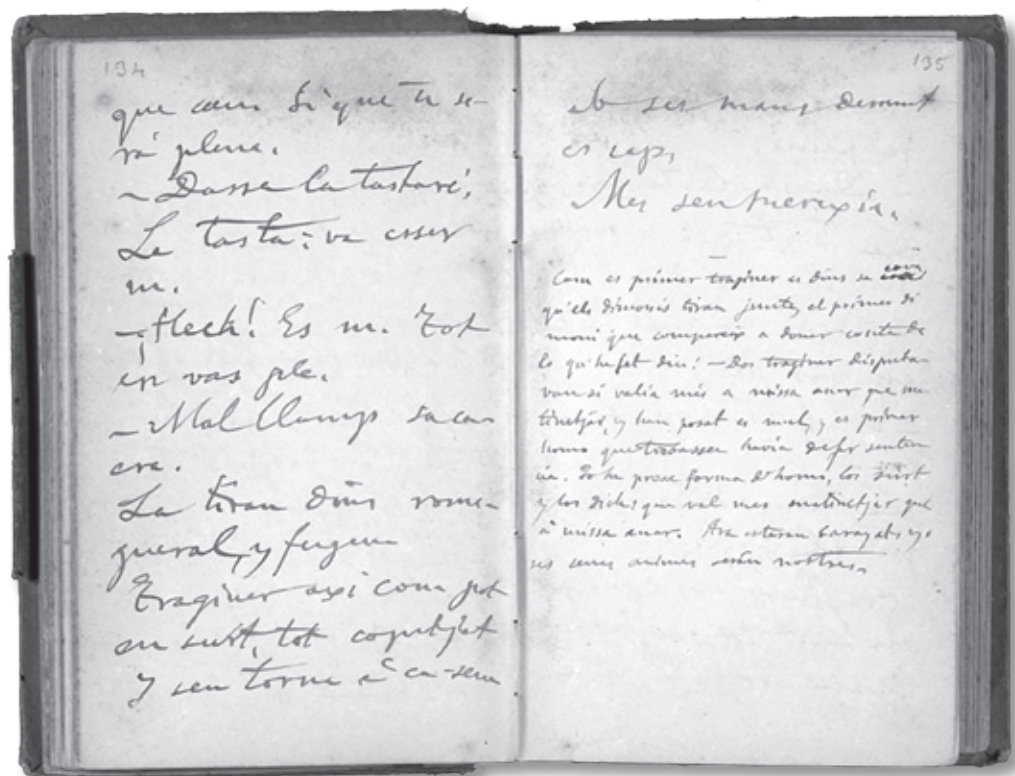 134
que caura. Si que tu se-
rá plena.
– Dassa la tastaré,
La tasta: va esser
m.
– ¡fleck! Es m. Tot
en vas ple.
– Mal llamp sa ca-
era.
La tiran dins rome-
gueral, y fugen
Traginer axi com pot
en surt, tot coputjat
Y sen torna á ca-seua
135
ab ses mans demunt
es cap,
Mes sen tuerexía.
Com es primer traginer es dins sa cova
qu'els dimonis tiran junta, el primer di
moni que compareix a donar conte de
lo qu'ha fet diu: – Dos traginer disputa-
van si valia més a missa anar que ma
tinetjar, y han posat es mul, y es primer
homo que trobassen havia de fer senten
cia. Jo he presa forma d'homo, los surt
y los dich que val mes matinetjar que
á missa anar. Ara estaran barayats y
ses seues animes serán nostres.